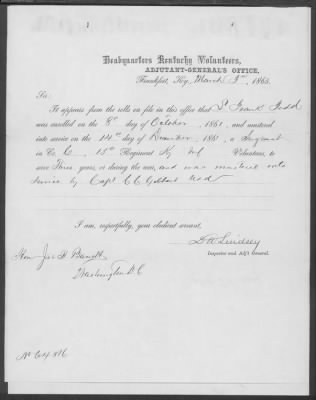 Headquarters Kentucky Volunteers,
ADJUTANT-GENERAL'S OFFICE,
Frankfort, Ky., March 3rd, 1865.
Sir:
It appears from the rolls on file in this office that S. Frank Todd
was enrolled on the 8th day of October, 1861, and mustered
into service on the 14th day of December, 1861, a Sergeant
in Co. C, 15th Regiment Ky Volunteers, to
serve Three years, or during the war, and was mustered into
service by Capt C C Gilbert USA
I am, respectfully, your obedient servant,
D W Lindsey
Inspector and Adj't General.
Hon Jos H Barrett
Washington D.C
No 64.816